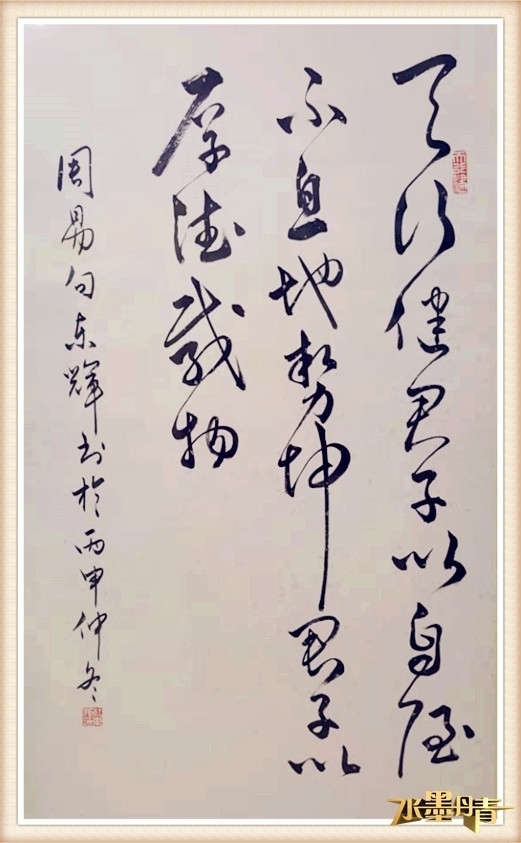 天行健君子以自强
不息地势坤君子以
厚德载物
周易句东辉书于丙申仲冬
水墨丹青